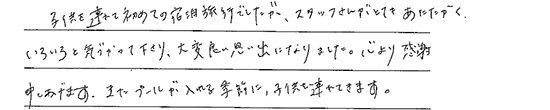 子供を連れて初めての宿泊旅行でしたが、スタッフさんがとてもあたたかく、
いろいろと気づかって下さり、大変良い思い出になりました。心より感謝
申しあげます。またプールが入れる季節に、子供を連れてきます。